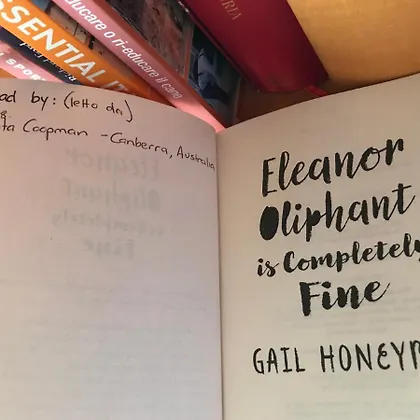 SSENTIALI
ducare o ri-educare il cane
RIA
SPOR
ad by: (letto da)
ta Coopman - Canberra, Australia
Eleanor
Oliphant
is Completely
Fine
GAIL HONEYM